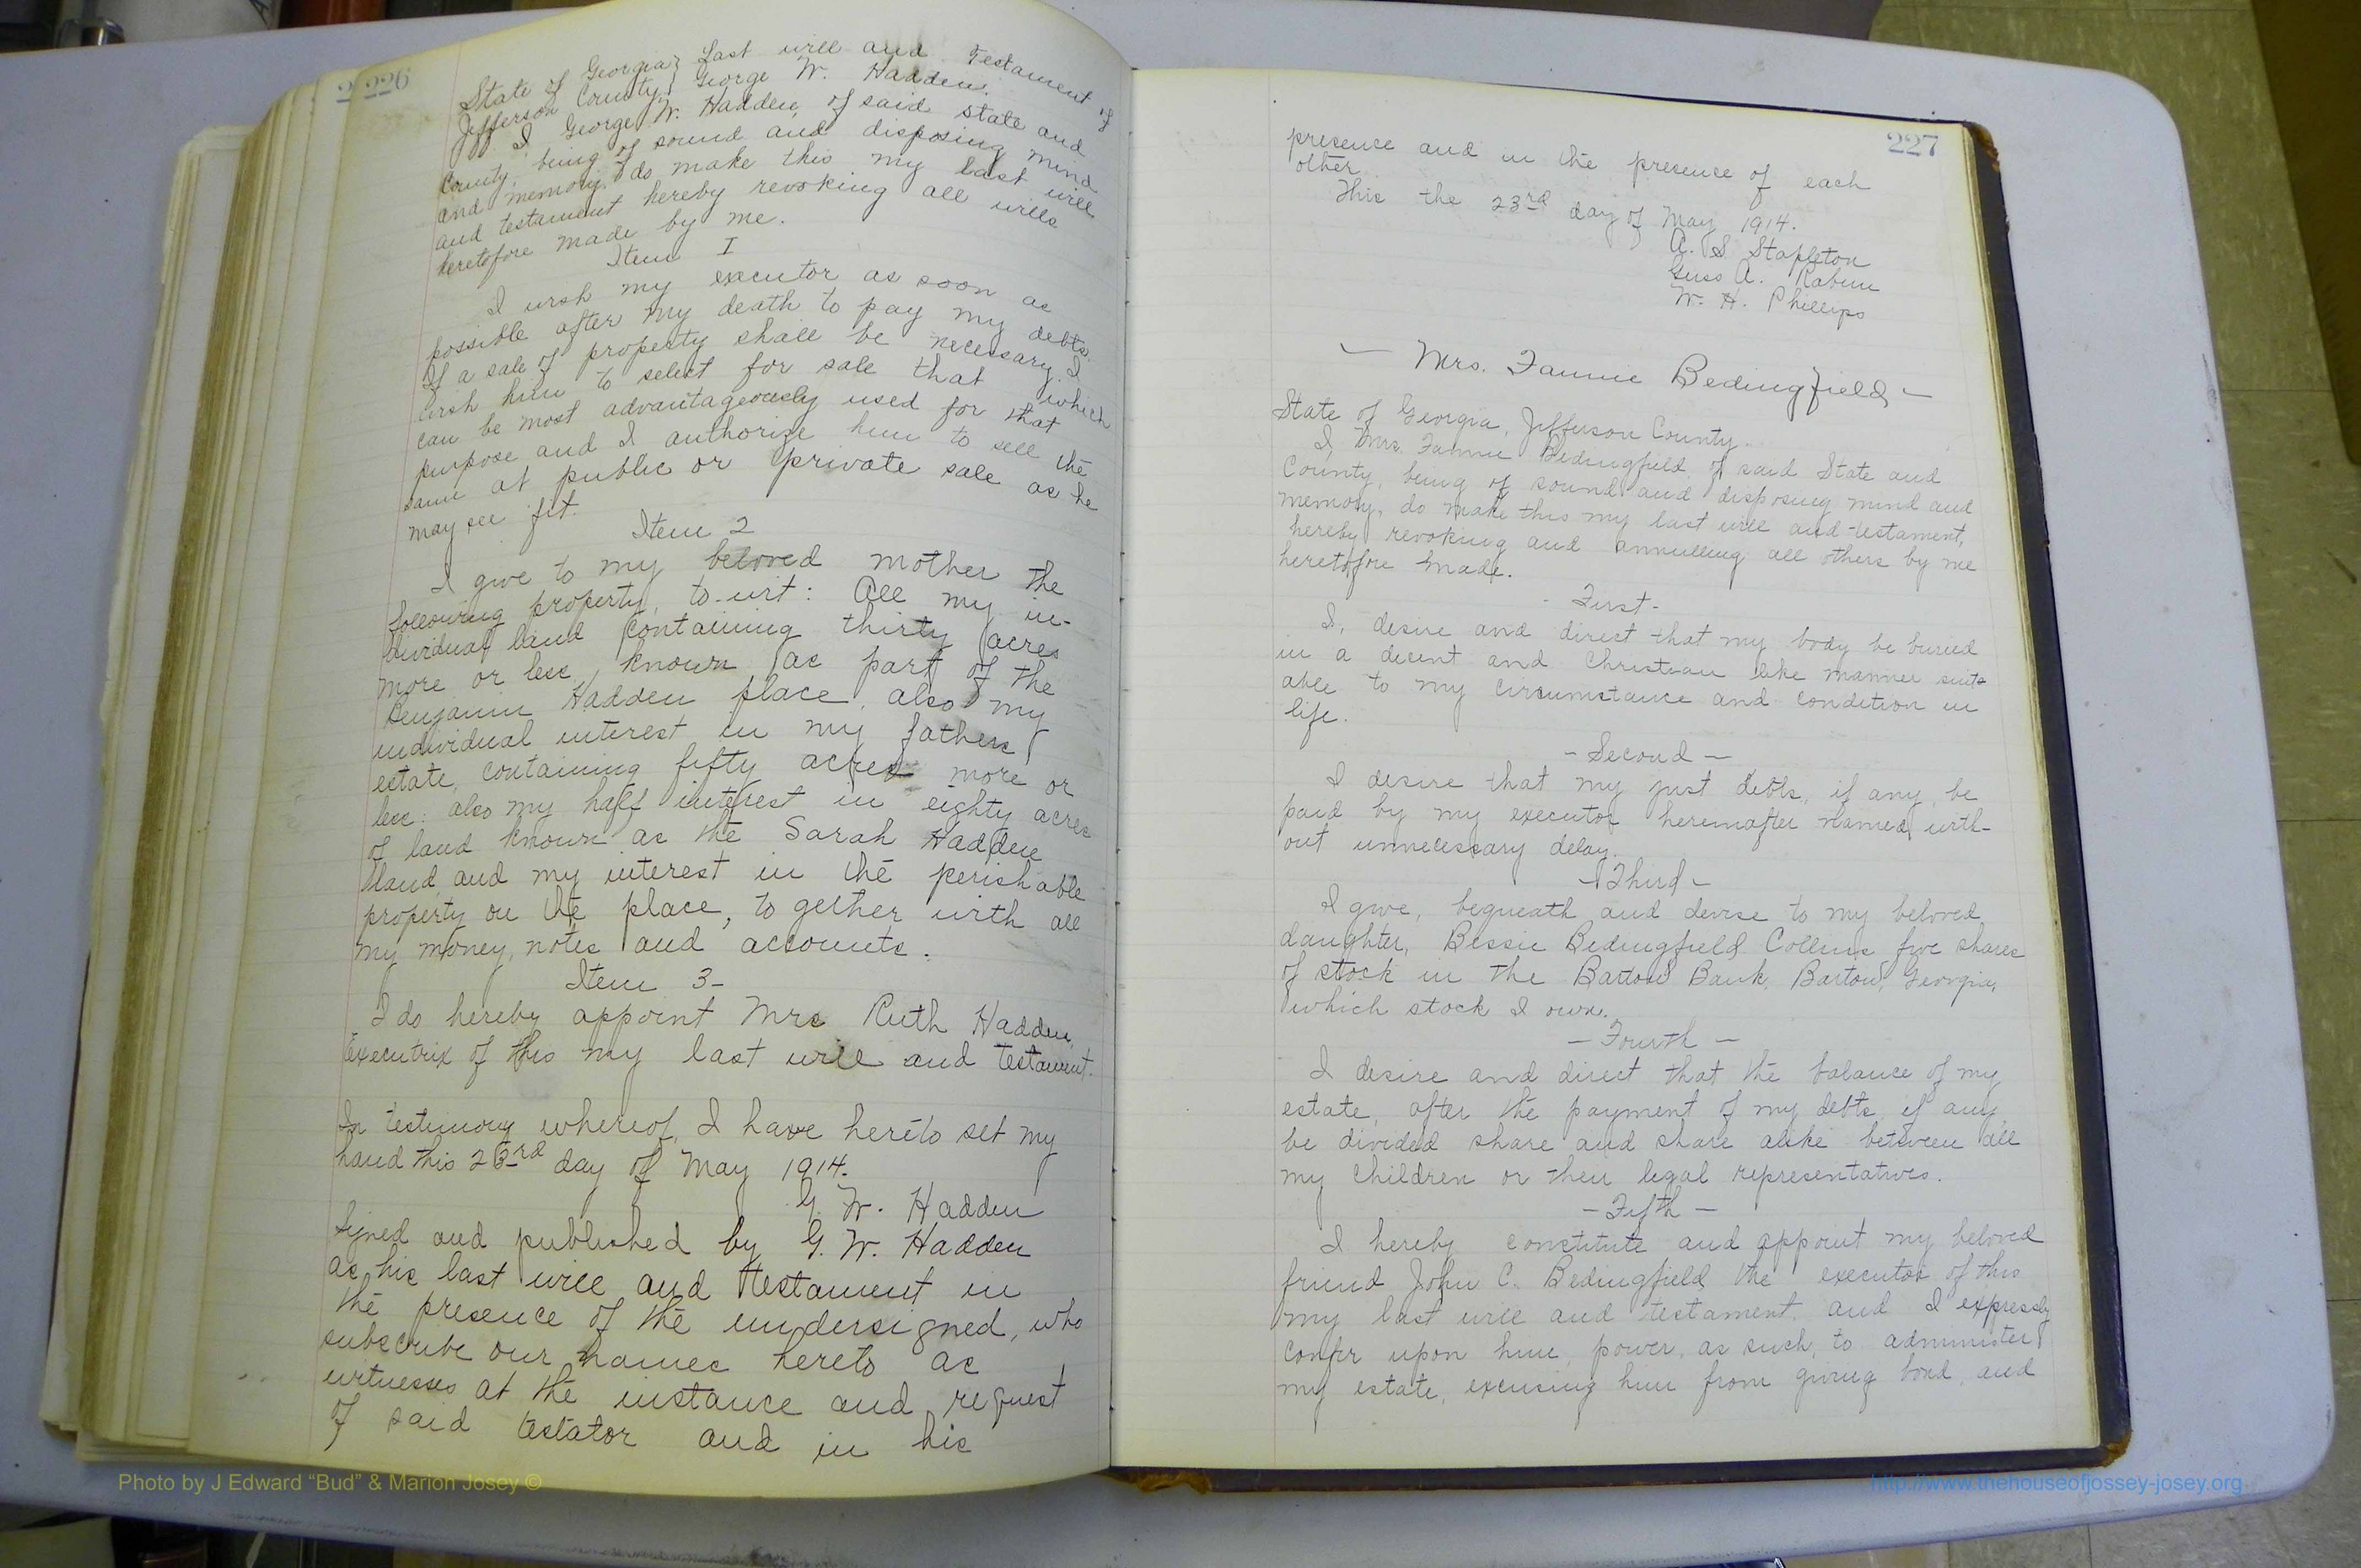 226
State of Georgia } Last will and Testament of
Jefferson County } George W. Hadden.
I George W. Hadden, of said state and
County, being of sound and disposing mind
and memory, do make this my last will
and testament hereby revoking all wills
heretofore made by me.
Item I
I wish my executor as soon as
possible after my death to pay my debts.
If a sale of property shall be necessary, I
wish him to select for sale that which
can be most advantageously used for that
purpose and I authorize him to sell the
same at public or private sale as he
may see fit.
Item 2
I give to my beloved mother the
following property, to-wit: All my in-
dividual land containing thirty acres
more or less, known as part of the
Benjamin Hadden place, also my
individual interest in my fathers
estate, containing fifty acres more or
less: also my half interest in eighty acres
of land known as the Sarah Hadden
land, and my interest in the perishable
property on the place, to gether with all
my money, notes and accounts.
Item 3-
I do hereby appoint Mrs Ruth Hadden,
Executrix of this my last will and testament.
In testimony whereof, I have hereto set my
hand this 23rd day of May 1914.
G. W. Hadden
Signed and published by G. W. Hadden
as his last will and testament in
the presence of the undersigned, who
subscribe our names hereto as
witnesses at the instance and request
of said testator and in his
227
presence and in the presence of each
other.
This the 23rd day of May 1914.
A. S. Stapleton
Guss A. Rabun
W. H. Phillips
— Mrs. Fannie Bedingfield —
State of Georgia, Jefferson County.
I, Mrs. Fannie Bedingfield of said State and
County, being of sound and disposing mind and
memory, do make this my last will and testament,
hereby revoking and annulling all others by me
heretofore made.
- First -
I, desire and direct that my body be buried
in a decent and Christian like manner suit-
able to my circumstance and condition in
life.
- Second -
I desire that my just debts, if any, be
paid by my executor hereinafter named, with-
out unnecessary delay.
- Third -
I give, bequeath and devise to my beloved
daughter, Bessie Bedingfield Collins five shares
of stock in the Bartow Bank, Bartow, Georgia,
which stock I own.
- Fourth -
I desire and direct that the balance of my
estate, after the payment of my debts, if any,
be divided share and share alike between all
my children or their legal representatives.
- Fifth -
I hereby constitute and appoint my beloved
friend John C. Bedingfield the executor of this
my last will and testament, and I expressly
confer upon him, power, as such, to administer
my estate, excusing him from giving bond, and
Photo by J Edward “Bud” & Marion Josey ©
http://www.thehouseofjossey-josey.org